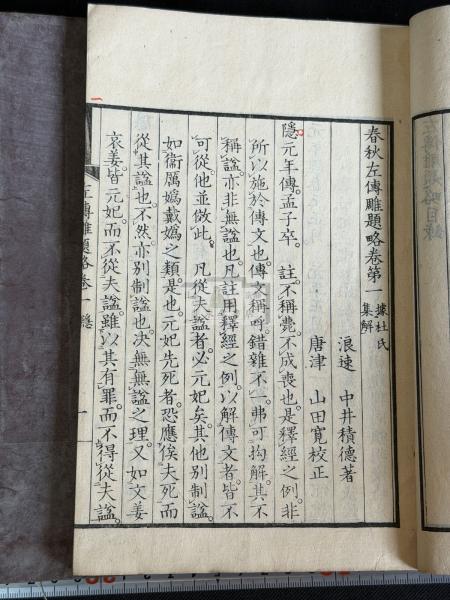 春秋左傳雕題略卷第一 據杜氏集解
浪速 中井積德著
唐津 山田寬校正
隱元年傳。孟子卒。註。不稱薨。不成喪也。是釋經之例。非
所以施於傳文也。傳文稱呼。錯雜不一。弗可拘解。其不
稱謚。亦非無謚也。凡註用釋經之例。以解傳文者。皆不
可從。他並倣此。凡從夫謚者。必元妃矣。其他別制謚。
如衞厲嬀戴嬀之類。是也。元妃先死者。恐應俟夫死而
從其謚也。不然。亦別制謚也。決無無謚之理。又如文姜
哀姜。皆元妃而不從夫謚。雖以其有罪而不得從夫謚。
左傳雕題略卷一 隱 一
左傳雕題略目錄